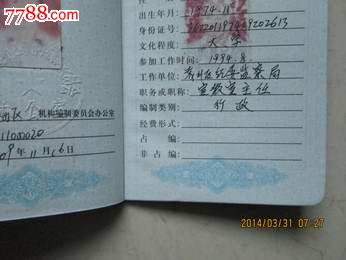 7788.com
西区 机构编制委员会办公室
11000020
09年11月16日
出生年月：1974.11
身份证号：
文化程度：大学
参加工作时间：1994.8
工作单位：监察局
职务或职称：宣教室主任
编制类别：行政
经费形式：
占编：
非占编：
2014/03/31 07:27